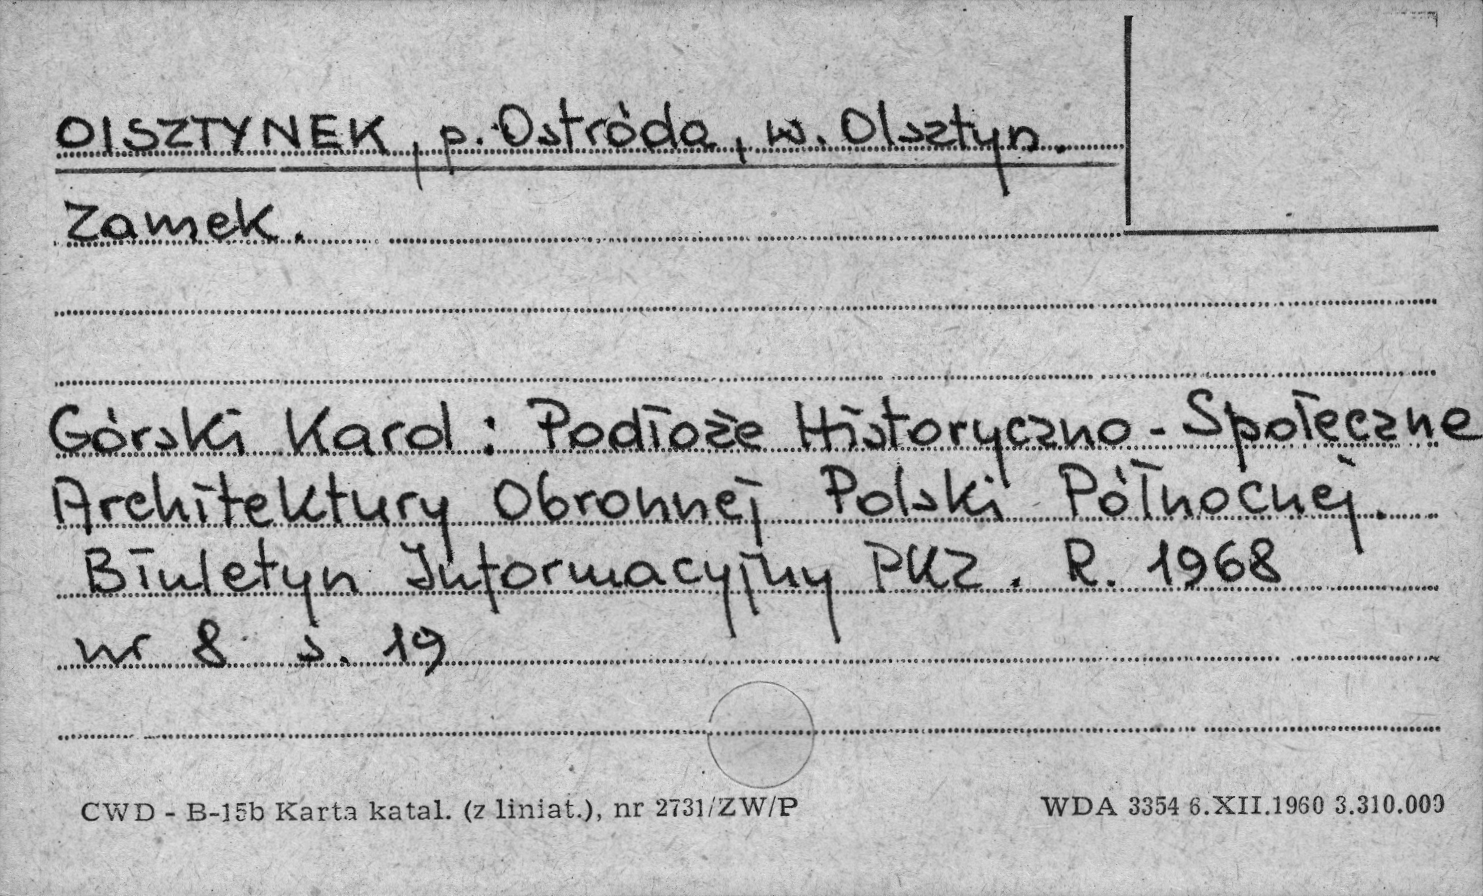 OLSZTYNEK, p. Ostróda, w. Olsztyn.
Zamek.
Górski Karol: Podłoże Historyczno - Społeczne
Architektury Obronnej Polski Północnej.
Biuletyn Informacyjny PKZ. R. 1968
nr 8 s. 19
CWD - B-15b Karta katal. (z liniat.), nr 2731/ZW/P WDA 3354 6.XII.1960 3.310.000